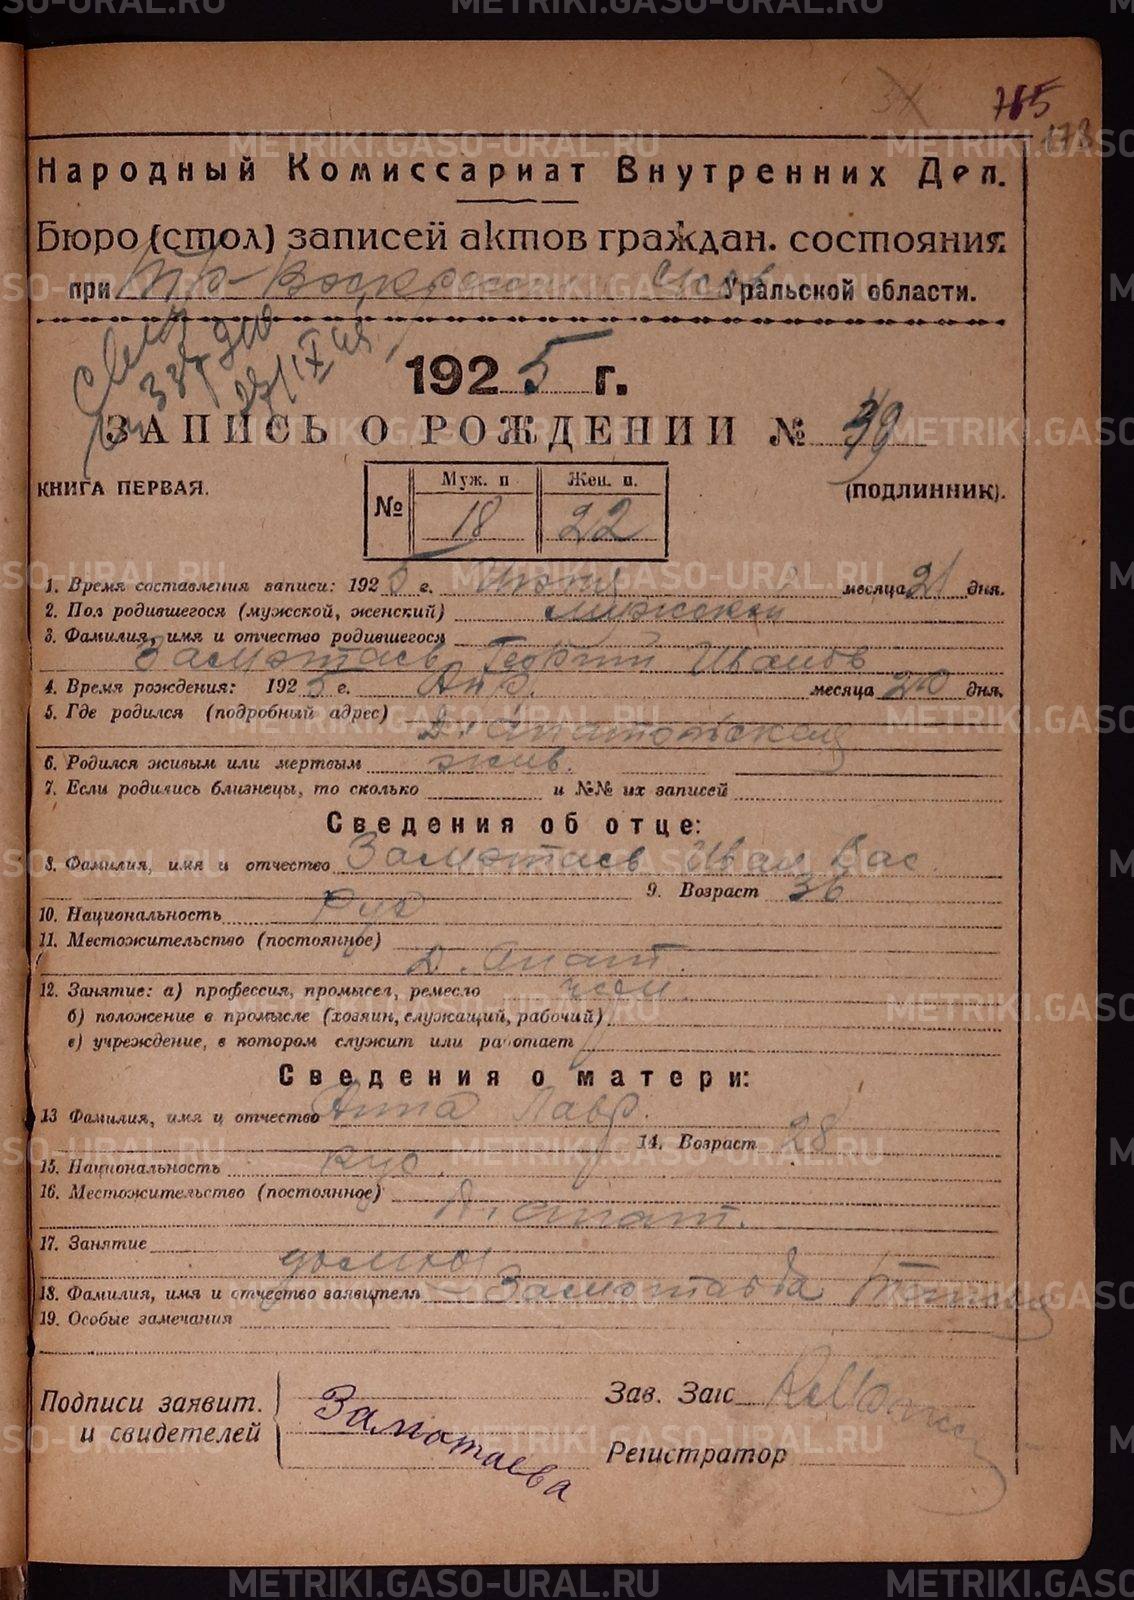 METRIKI.GASO-URAL.RU
765
173
Народный Комиссариат Внутренних Дел.
Бюро (стол) записей актов граждан. состояния
при Уральской области.
1925 г.
ЗАПИСЬ О РОЖДЕНИИ №
КНИГА ПЕРВАЯ.
(ПОДЛИННИК).
№ Муж. п Жен. п.
18 22
1. Время составления записи: 1925 г. месяца 21 дня.
2. Пол родившегося (мужской, женский) мужской
3. Фамилия, имя и отчество родившегося
Замотаев Георгий Иванов
4. Время рождения: 1925 г. Апр. месяца 20 дня.
5. Где родился (подробный адрес)
Д. Анатольская
6. Родился живым или мертвым жив.
7. Если родились близнецы, то сколько и №№ их записей
Сведения об отце:
8. Фамилия, имя и отчество Замотаев Иван Вас
9. Возраст 36
10. Национальность рус
11. Местожительство (постоянное)
Д. Анат.
12. Занятие: а) профессия, промысел, ремесло
б) положение в промысле (хозяин, служащий, рабочий)
в) учреждение, в котором служит или работает
Сведения о матери:
13 Фамилия, имя и отчество Анна Лавр.
14. Возраст 28
15. Национальность рус.
16. Местожительство (постоянное)
Д. Анат.
17. Занятие
18. Фамилия, имя и отчество заявителя Замотаева
19. Особые замечания
Подписи заявит.
и свидетелей
Замотаева
Зав. Загс
Регистратор